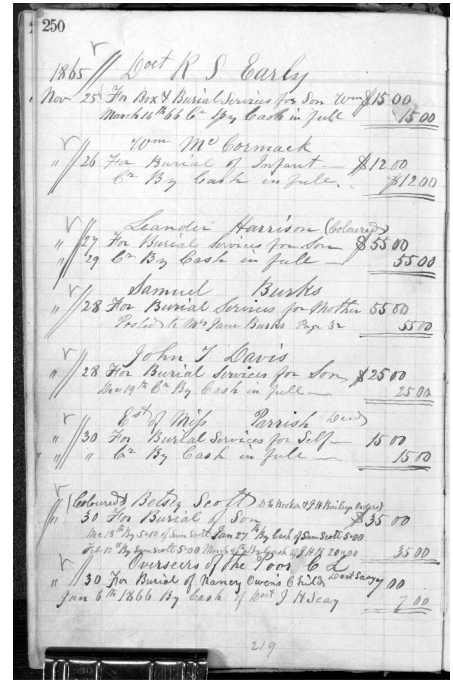 250
1865 Doct R S Early
Nov 25 For Box & Burial Services for Son Wm $15 00
March 14th 66 Cr By Cash in full 15 00
Wm McCormack
" 26 For Burial of Infant — $12 00
Cr By Cash in full . $12 00
Leander Harrison (Coloured)
" 27 For Burial Services for Son $55 00
" 29 Cr By Cash in full — 55 00
Samuel Burks
" 28 For Burial Services for Mother 55 00
Posted to Mrs Jane Burks Page 32 55 00
John T Davis
" 28 For Burial Services for Son, $25 00
Dec 19th Cr By Cash in full — 25 00
Est of Miss Parrish Decd
" 30 For Burial Services for Self — 15 00
" " Cr By Cash in full — 15 00
(Coloured) Betsy Scott D E Booker & J H Baileys Orders)
" 30 For Burial of Son $35 00
Dec 18th By 5.00 of Sam Scott Jan 27th By Cash of Sam Scott 5.00
Feb 12th By Sam Scott 5.00 By Cash of J H B 20.00 35 00
Overseers of the Poor C L
" 30 For Burial of Nancy Owens Child, Doct Seay 7 00
Jan 6th 1866 By Cash of Doct J H Seay 7 00
219